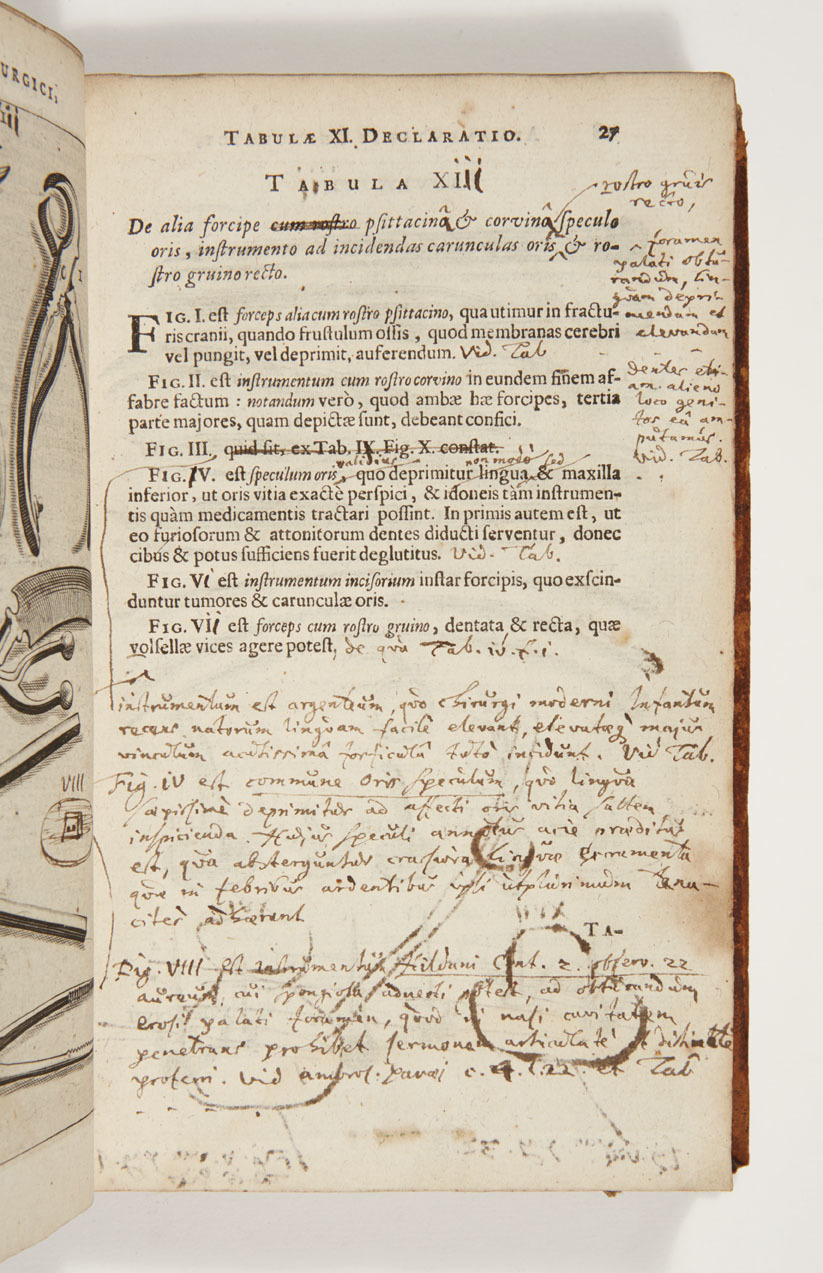 URGICI,
VIII
TABULÆ XI. DECLARATIO. 27
TABULA XIII
rostro gruis
recto,
De alia forcipe cum rostro psittacinâ & corvinâ speculo
oris, instrumento ad incidendas carunculas oris & ro-
stro gruino recto.
foramen
palati obtu-
randum, lin-
guam deprî-
mendam et
elevandam
FIG. I. est forceps alia cum rostro psittacino, qua utimur in fractu-
ris cranii, quando frustulum ossis, quod membranas cerebri
vel pungit, vel deprimit, auferendum. Vid. Tab
FIG. II. est instrumentum cum rostro corvino in eundem finem af-
fabre factum: notandum verò, quod ambæ hæ forcipes, tertia
parte majores, quam depictæ sunt, debeant confici.
dentes eti-
am alieno
loco geni-
tos eâ am-
putamus.
Vid. Tab.
FIG. III. quid sit, ex Tab. IX. Fig. X. constat.
validius non modo sed
FIG. IV. est speculum oris, quo deprimitur lingua & maxilla
inferior, ut oris vitia exactè perspici, & idoneis tàm instrumen-
tis quàm medicamentis tractari possint. In primis autem est, ut
eo furiosorum & attonitorum dentes diducti serventur, donec
cibus & potus sufficiens fuerit deglutitus. Vid. Tab.
FIG. VI est instrumentum incisorium instar forcipis, quo exscin-
duntur tumores & carunculæ oris.
FIG. VII est forceps cum rostro gruino, dentata & recta, quæ
volsellæ vices agere potest, de quâ Tab. iv. f. 1.
instrumentum est argenteum, quo chirurgi moderni Infantum
recens natorum linguam facilè elevant, elevatæq majus
vinculum acutissimâ forficulâ tutò incidunt. Vid Tab.
Fig. IV est commune oris speculum, quo lingua
sæpissimè deprimitur ad affecti oris vitia saltem
inspicienda. Hujus speculi annulus acie præditus
est, quâ absterguntur crassiora linguæ excrementa
quæ in febribus ardentibus ipsi utplurimum tena-
citer adhærent
TA-
Fig. VIII est instrumentum Hildani Cent. 2. observ. 22
aureum, cui spongiola adnecti potest, ad obturandum
erosi palati foramen, quod in nasi cavitatem
penetrans prohibet sermonem articulatè et distinctè
proferri. Vid ambros. paræi c. 4. l. 22. et Tab